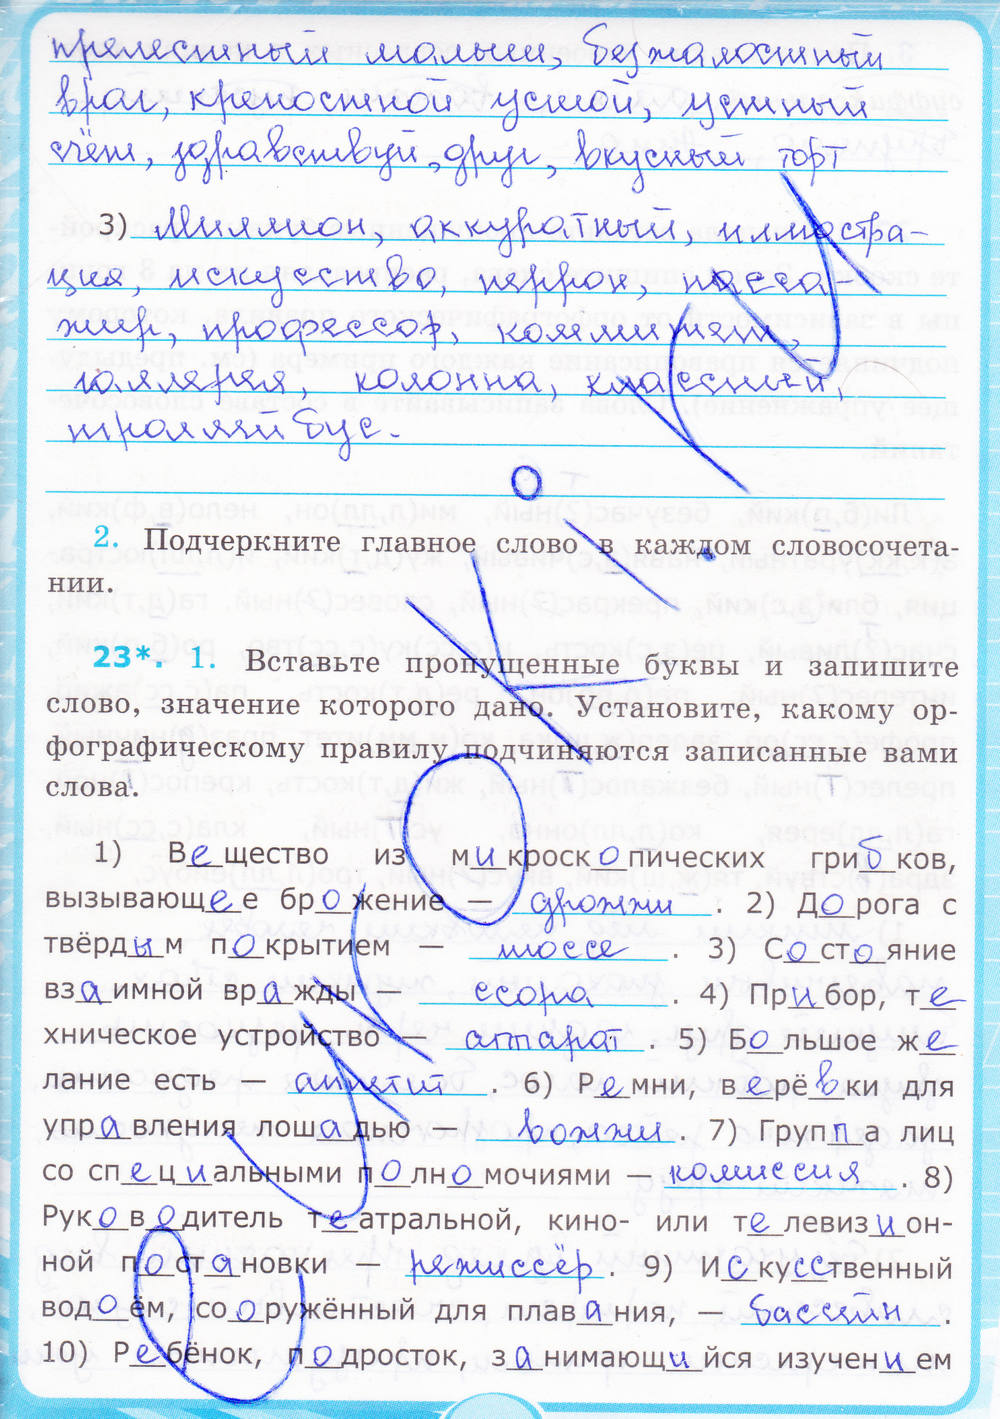 прелестный малыш, безжалостный
враг, крепостной устой, устный
счёт, здравствуй, друг, вкусный торт
3) Миллион, аккуратный, иллюстра-
ция, искусство, перрон, пасса-
жир, профессор, коммитет,
галлерея, колонна, классный
троллейбус.
2. Подчеркните главное слово в каждом словосочета-
нии.
23*. 1. Вставьте пропущенные буквы и запишите
слово, значение которого дано. Установите, какому ор-
фографическому правилу подчиняются записанные вами
слова.
1) Вещество из микроскопических грибков,
вызывающее брожение — дрожжи. 2) Дорога с
твёрдым покрытием — шоссе. 3) Состояние
взаимной вражды — ссора. 4) Прибор, те
хническое устройство — аппарат. 5) Большое же
лание есть — аппетит. 6) Ремни, верёвки для
управления лошадью — вожжи. 7) Группа лиц
со специальными полномочиями — комиссия. 8)
Руководитель театральной, кино- или телевизион-
ной постановки — режиссер. 9) Искусственный
водоём, сооружённый для плавания, — бассейн.
10) Ребёнок, подросток, занимающийся изучением